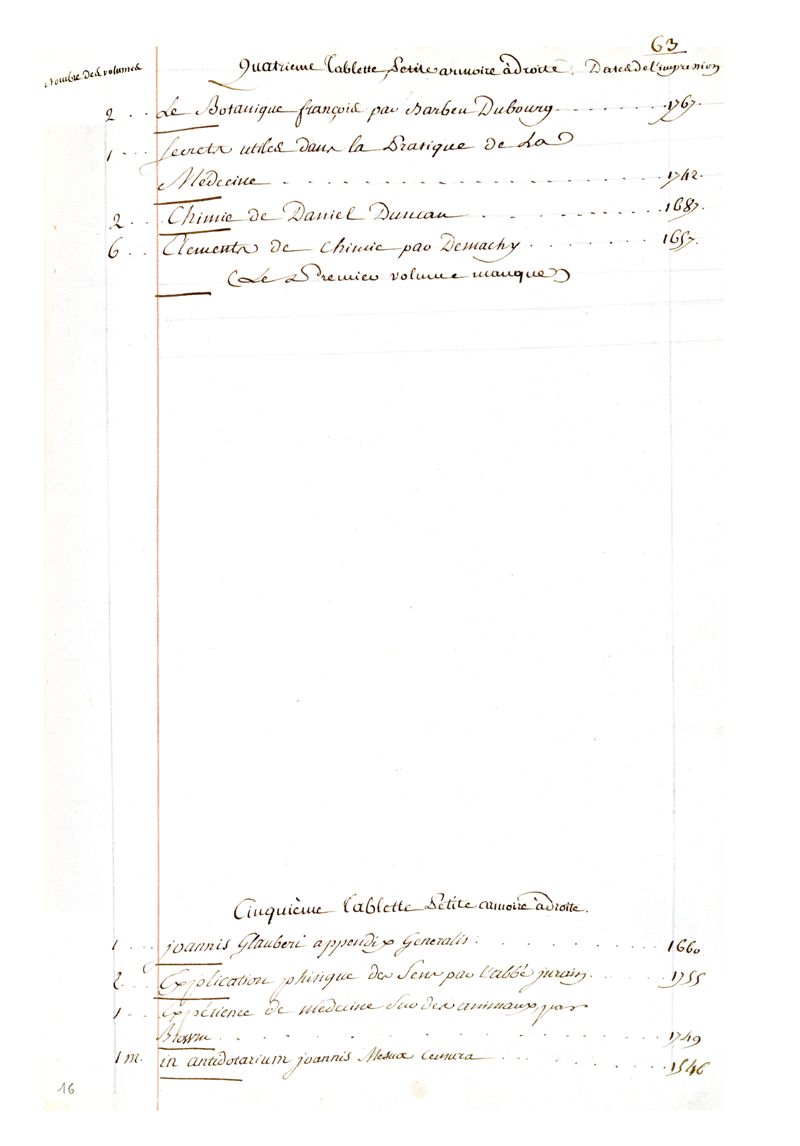 63
Nombre des volumes Quatrieme Tablette Petite armoire à droite. Dates de l'impression
2 . . Le Botanique françois par Barbeu Dubourg . . . . . . . 1767.
1 . . . Secrets utiles dans la Pratique de La
Médecine . . . . . . . . . . . . . . . . . . 1742.
2 . . . Chimie de Daniel Duncan . . . . . . . . . 1687.
6 . . Elements de Chimie par Demachy . . . . . . . . 1657.
(Le Premier volume manque)
Cinquième Tablette Petite armoire à droite.
1 . . . joannis Glauberi appendix Generalis . . . . . . . . 1660
2 . . . Explication phisique des Sens par l'abbé jurain . . . . 1755
1 . . Expérience de médecine Sur des animaux par
. . . . . . . . . . . . . . . 1749
1 m. in antidotarium joannis Mesuæ Censura . . . . . . . . 1546
16